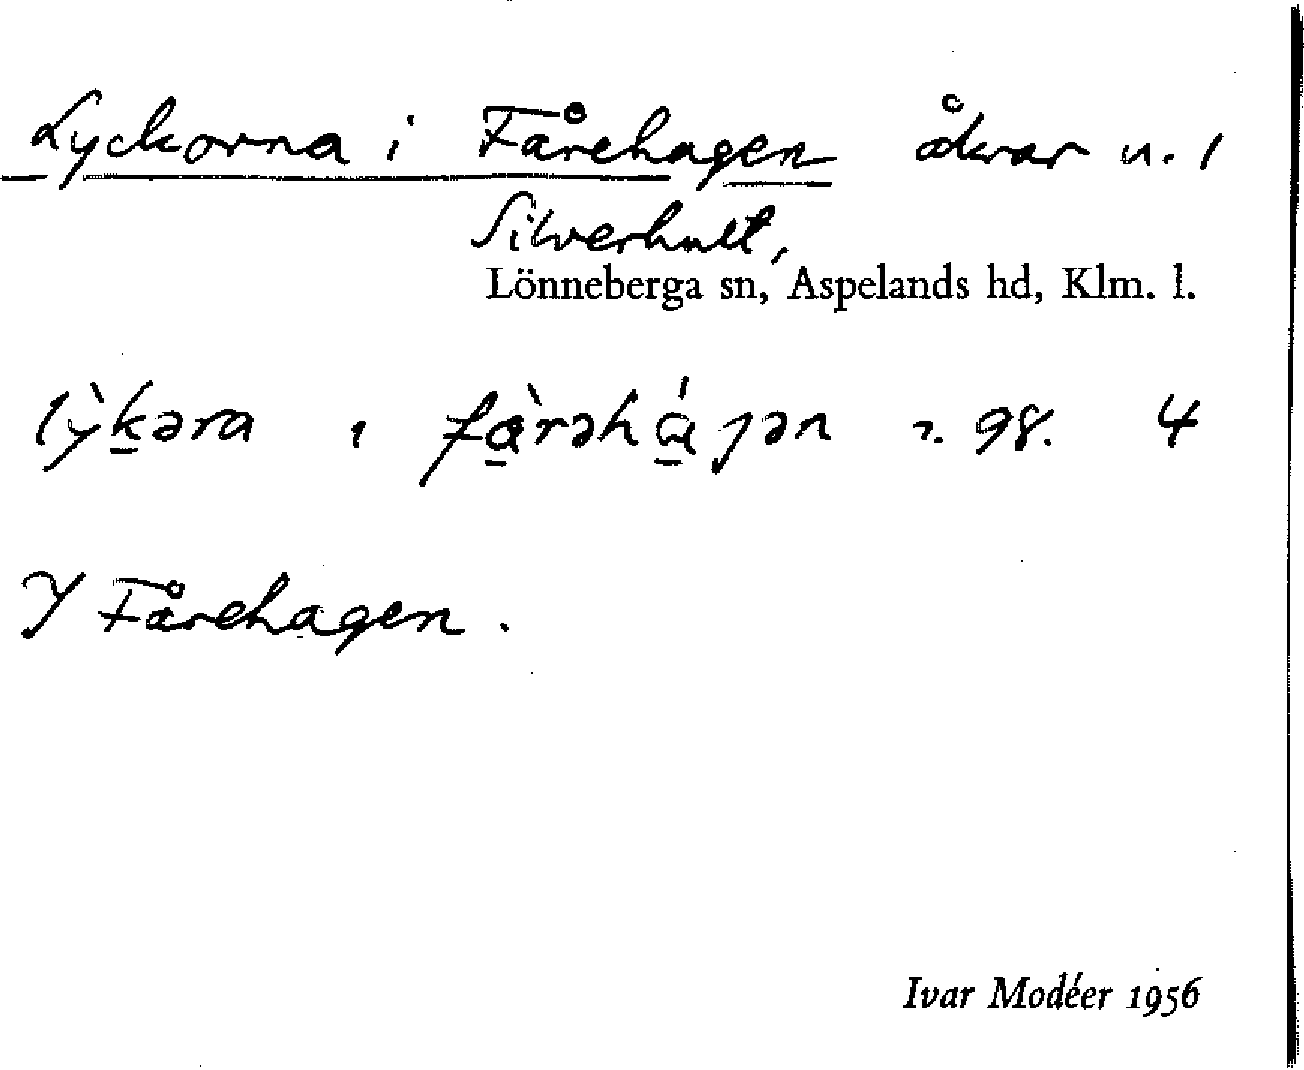 Lyckorna i Fårehagen åkrar u. 1
Silverhult,
Lönneberga sn, Aspelands hd, Klm. l.
lỳkəra ı fàrəhágən 98. 4
I Fårehagen.
Ivar Modéer 1956